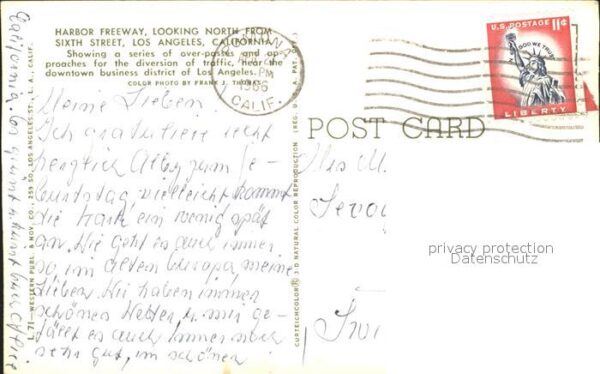 HARBOR FREEWAY, LOOKING NORTH FROM
SIXTH STREET, LOS ANGELES, CALIFORNIA
Showing a series of over-passes and ap-
proaches for the diversion of traffic, near the
downtown business district of Los Angeles.
COLOR PHOTO BY FRANK J. THOMAS
PM
1966
CALIF.
U.S. POSTAGE 11¢
IN GOD WE TRUST
LIBERTY
POST CARD
Meine Lieben!
Ich gratuliere recht
herzlich zum Ge-
burtstag, vielleicht kommt
die Karte ein wenig spät
an. Hie geht es auch immer
so, im alten Europa, meine
Lieben. Wir haben immer
schönes Wetter u. mir ge-
fällt es auch immer noch
sehr gut, im schönen
California.
L. 71—WESTERN PUBL. & NOV. CO., 259 SO. LOS ANGELES ST., L. A., CALIF.
CURTEICHCOLOR® 3-D NATURAL COLOR REPRODUCTION (REG. U.S.A. PAT. OFF.)
privacy protection
Datenschutz